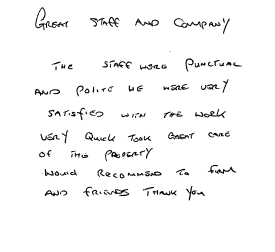 GREAT STAFF AND COMPANY
THE STAFF WERE PUNCTUAL
AND POLITE WE WERE VERY
SATISFIED WITH THE WORK
VERY QUICK TOOK GREAT CARE
OF THE PROPERTY
WOULD RECOMMEND TO FAM
AND FRIENDS THANK YOU